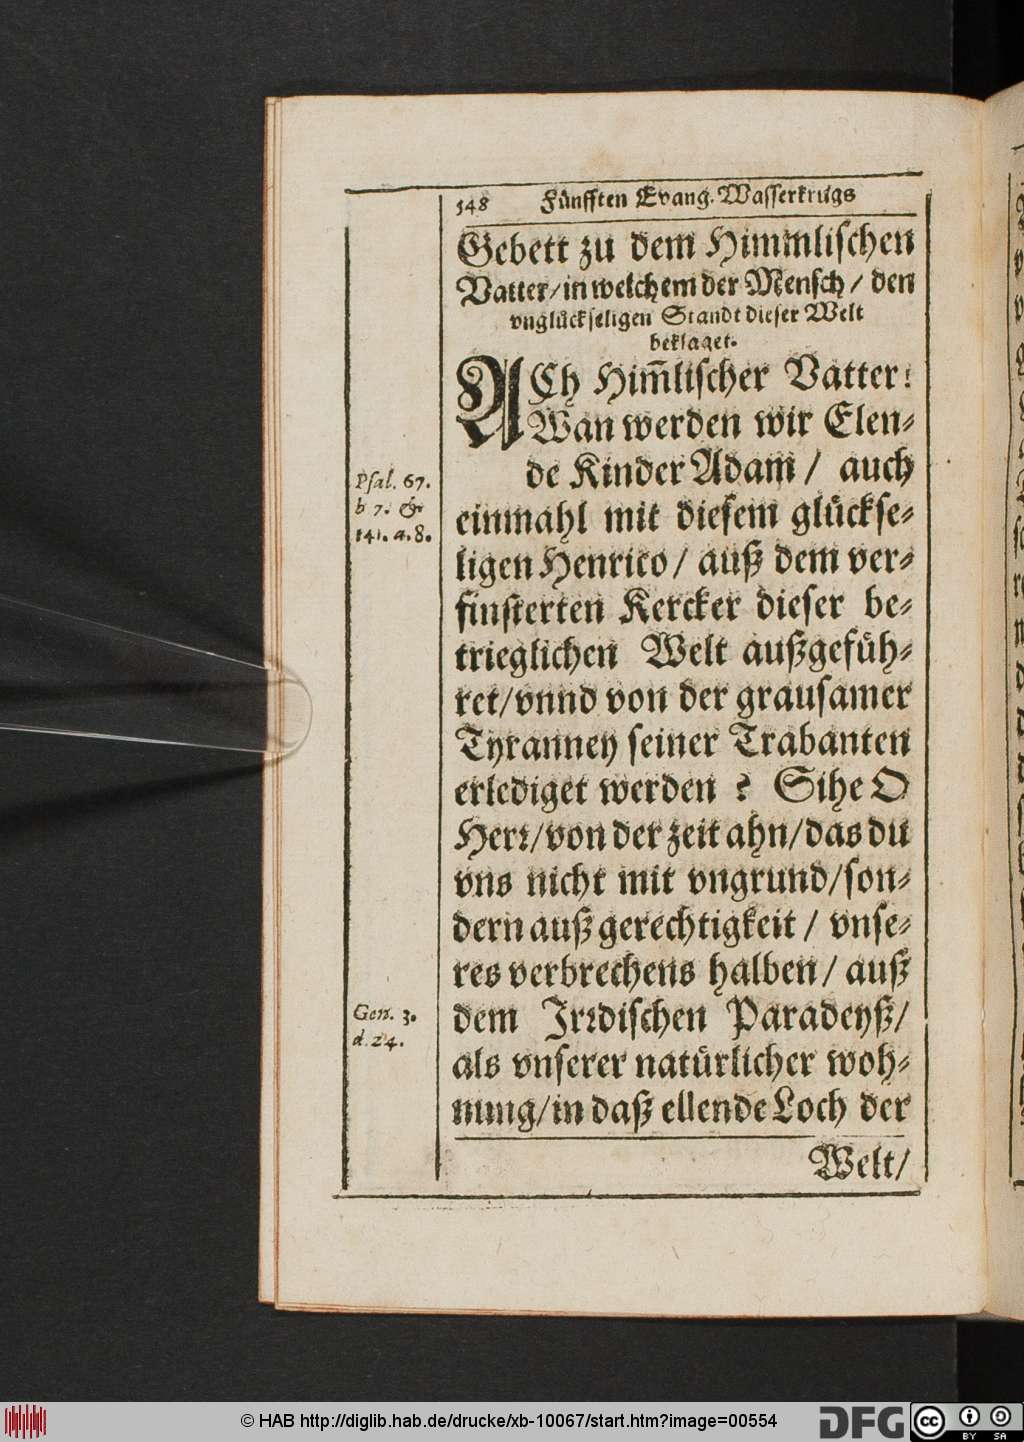 548 Fünfften Evang. Wasserkrugs
Gebett zu dem Himmlischen
Vatter/in welchem der Mensch/ den
vnglückseligen Standt dieser Welt
beklaget.
ACh Him̅lischer Vatter!
Wan werden wir Elen-
de Kinder Adam / auch
einmahl mit diesem glückse-
ligen Henrico / auß dem ver-
finsterten Kercker dieser be-
trieglichen Welt außgefüh-
ret/vnnd von der grausamer
Tyranney seiner Trabanten
erlediget werden ? Sihe O
Herr/von der zeit ahn/das du
vns nicht mit vngrund/son-
dern auß gerechtigkeit / vnse-
res verbrechens halben / auß
dem Irrdischen Paradeyß/
als vnserer natürlicher woh-
nung/in daß ellende Loch der
Welt/
Psal. 67.
b 7. &
141. a. 8.
Gen. 3.
d. 24.
© HAB http://diglib.hab.de/drucke/xb-10067/start.htm?image=00554
DFG
cc BY SA